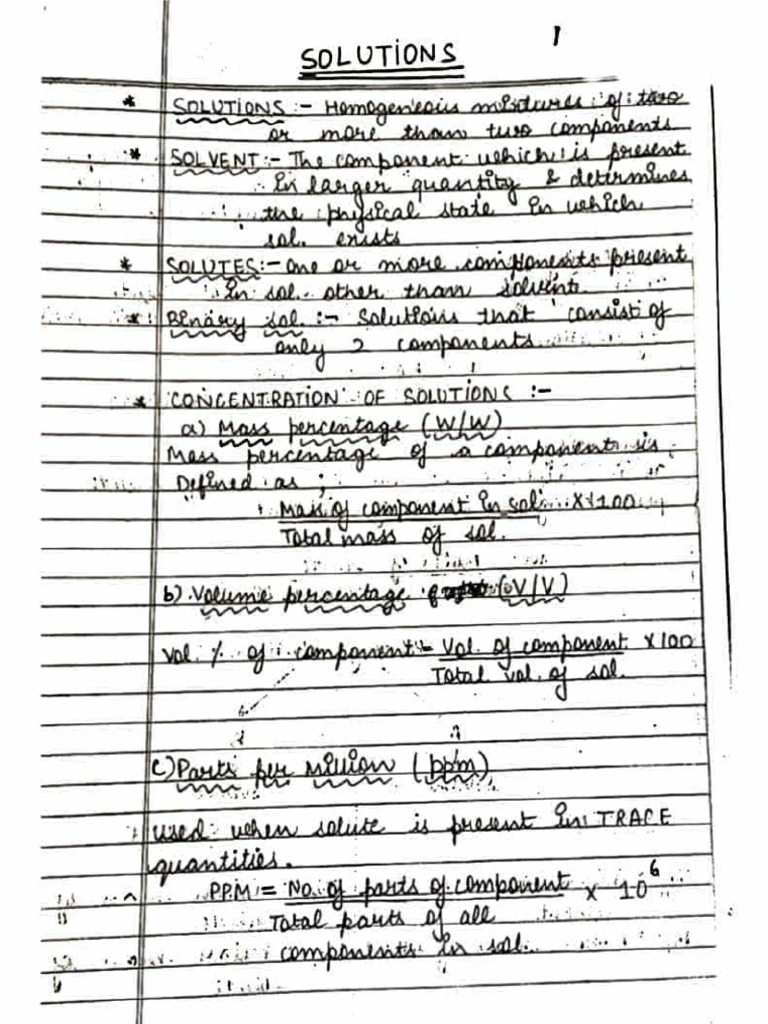 1
SOLUTIONS
* SOLUTIONS :- Homogeneous mixtures of two
or more than two components
* SOLVENT :- The component which is present
in larger quantity & determines
the physical state in which
sol. exists
* SOLUTES :- One or more components present
in sol. other than solvent
* Binary sol. :- Solutions that consist of
only 2 components
* CONCENTRATION OF SOLUTIONS :-
a) Mass percentage (W/W)
Mass percentage of a component is
Defined as ;
Mass of component in sol. X 100
Total mass of sol.
b) Volume percentage (V/V)
Vol. % of component = Vol. of component X 100
Total vol. of sol.
c) Parts per Million (ppm)
used when solute is present in TRACE
quantities.
PPM = No. of parts of component x 10⁶
Total parts of all
components in sol.